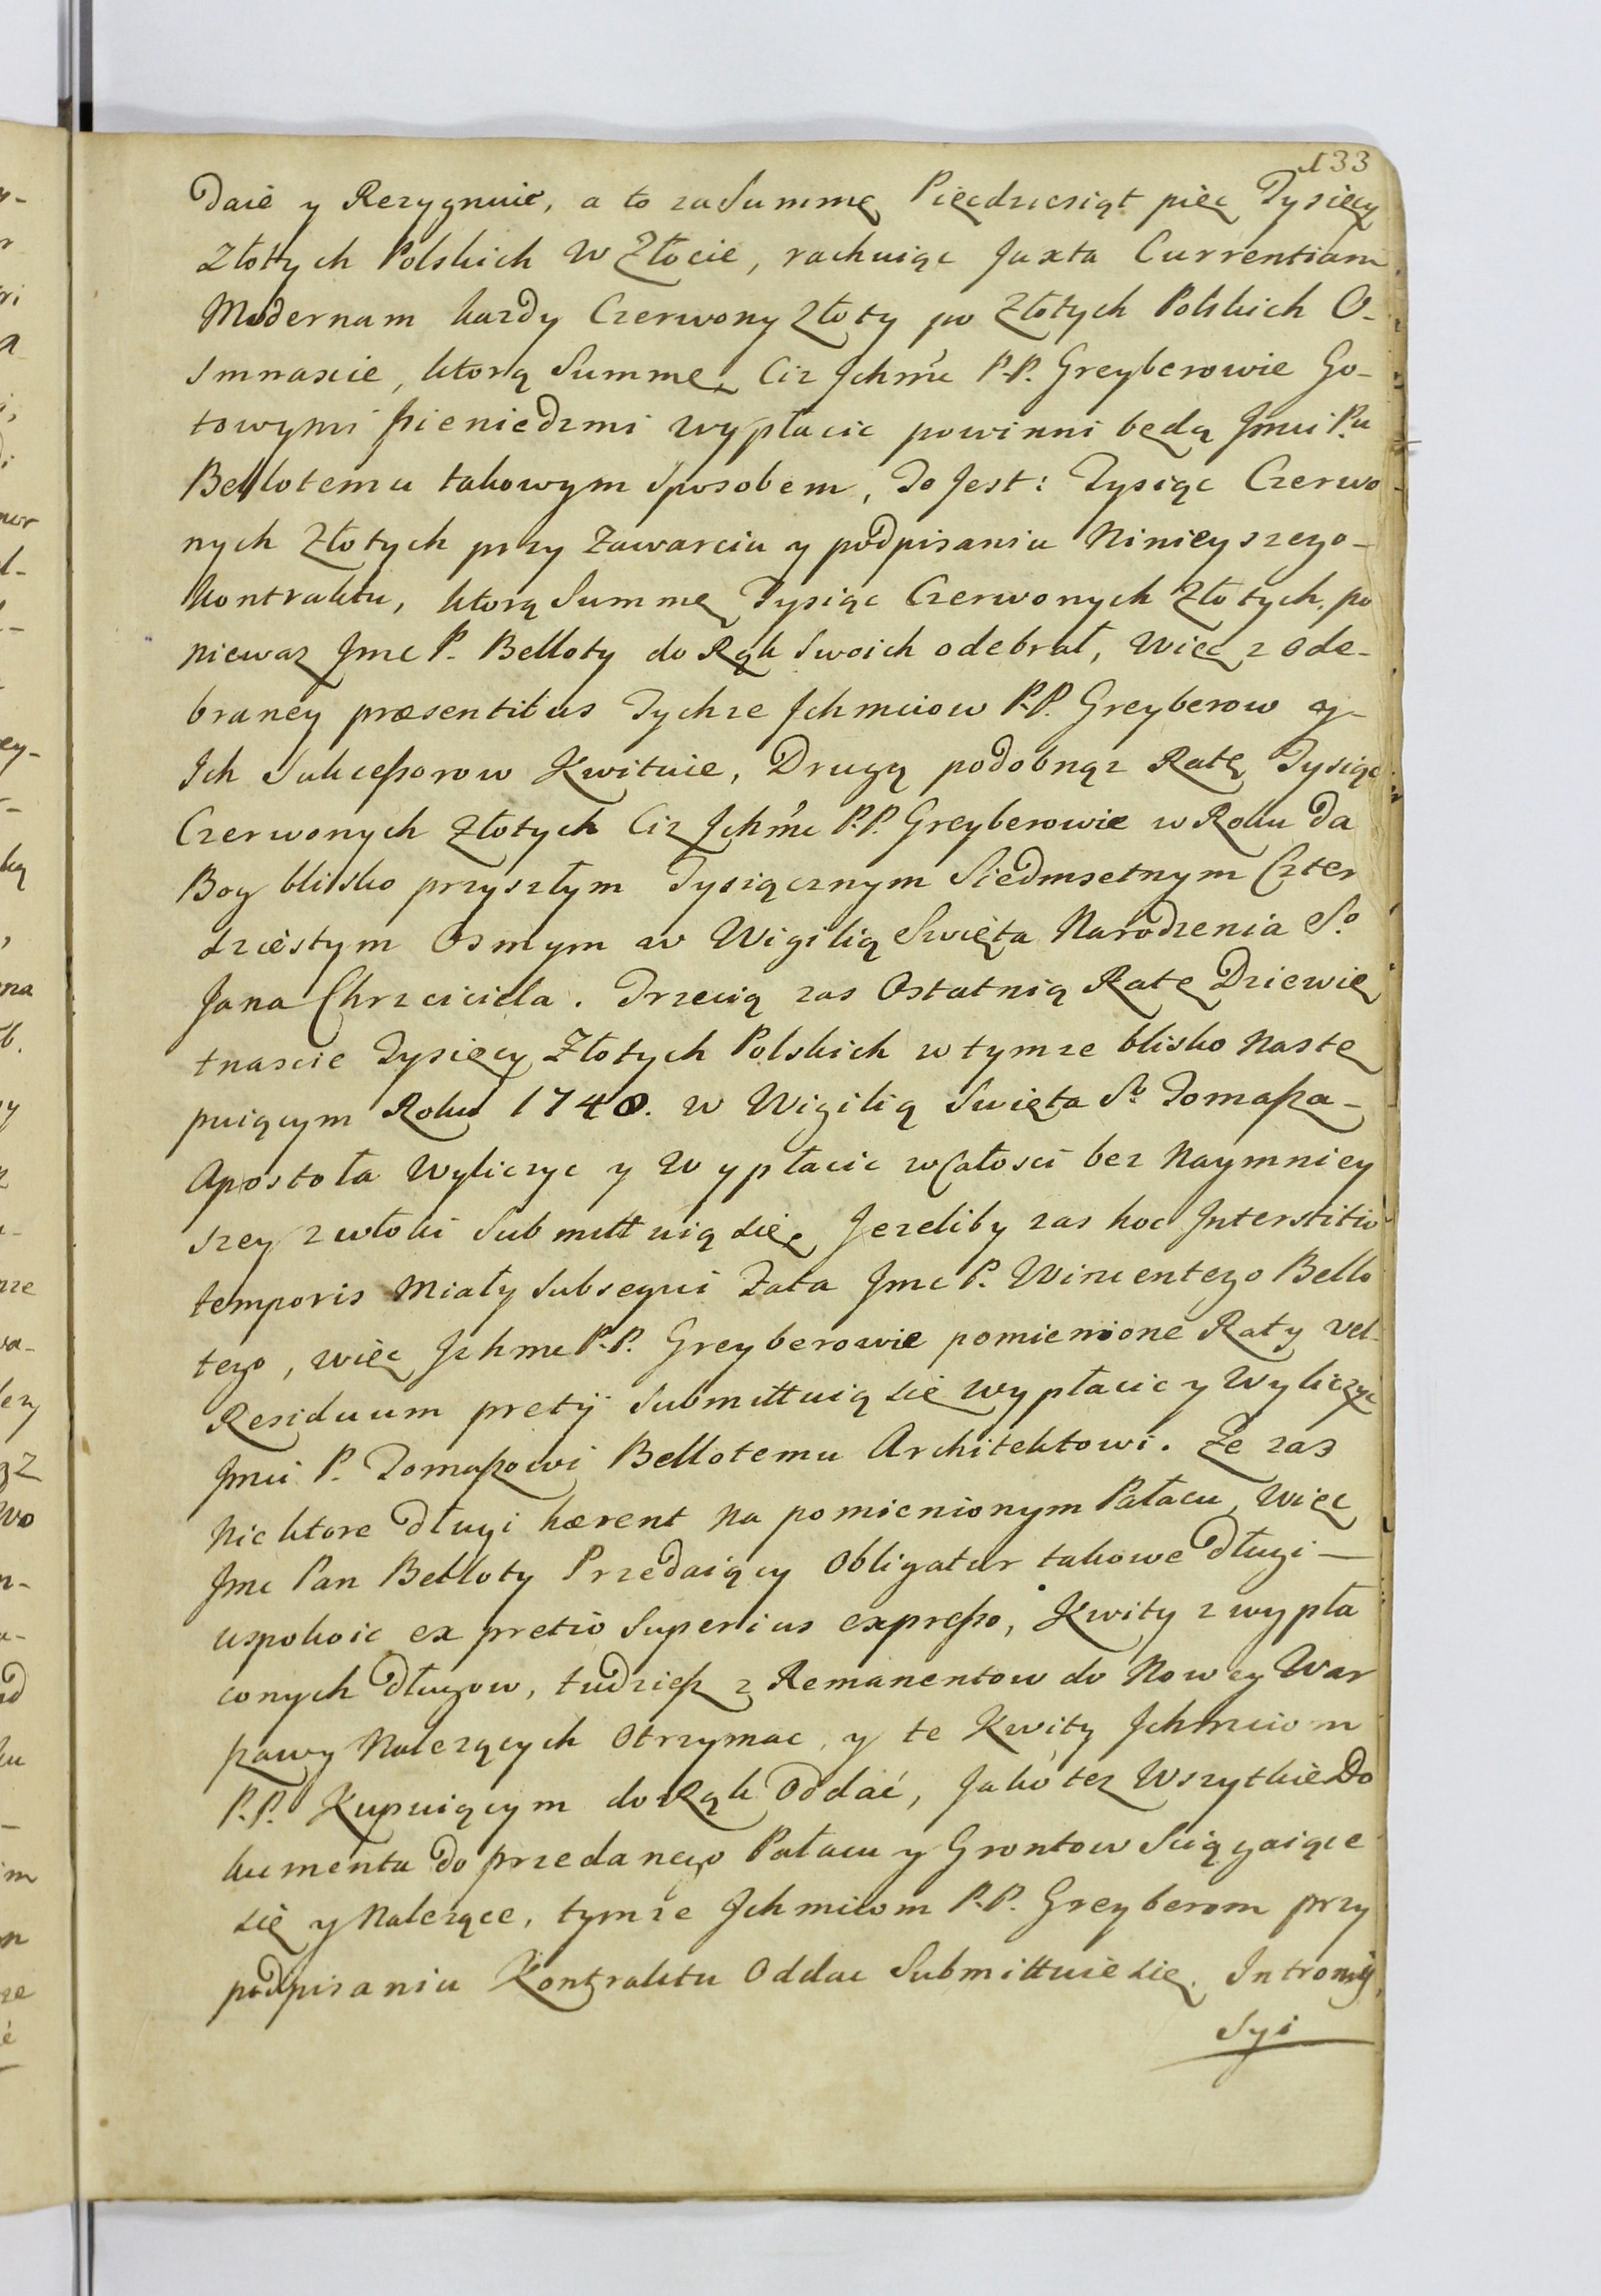 133
Daie y Rezygnuie, a to za Summę Pięcdziesiąt pięc Tysięcy
Złotych Polskich w Złocie, rachuiąc Juxta Currentiam
Modernam kazdy Czerwony Złoty po Złotych Polskich O-
smnascie, ktorą Summę, Ciz Ichmć P.P. Greyberowie Go-
towymi pieniedzmi wypłacic powinni będą Jmći P.u
Bellotemu takowym sposobem, To Jest: Tysiąc Czerwo
nych Złotych przy Zawarciu y podpisaniu Ninieyszego-
Kontraktu, ktorą Summę Tysiąc Czerwonych Złotych, po
niewaz Jmc P. Belloty do Rąk Swoich odebrał, Więc z ode-
braney præsentibus Tychze Ichmciow P.P. Greyberow y-
Ich Sukceßorow Kwituie, Drugą podobnąz Ratę Tysiąc
Czerwonych Złotych Ciz Ichmć P.P. Greyberowie w Roku Da
Bog blisko przyszłym Tysiącznym Siedmsetnym Czter
dziestym Osmym w Wigilią Swięta Narodzenia S.o
Jana Chrzciciela. Trzecią zas Ostatnią Ratę Dziewię
tnascie Tysięcy Złotych Polskich w tymze blisko nastę
puiącym Roku 1748. w Wigilią Swięta S.o Tomaßa-
Apostoła Wyliczyc y Wypłacic w Całosci bez Naymniey
szey zwłoki Submittuią się, Jezeliby zas hoc Interstitio
temporis Miały Subsequi Fata Jmc P. Wincentego Bello
tego, więc Ichmc P.P. Greyberowie pomienione Raty vel-
Residuum pretij Submittuią się Wypłacic y Wyliczyc
Jmći P. Tomaßowi Bellotemu Architektowi. Ze zas
Niektore długi hærent na pomienionym Pałacu, Więc
Jmc Pan Belloty Przedaiący Obligatur takowe długi-
uspokoic ex pretio Superius expreßo, Kwity z wypła
conych długow, tudzieß z Remanentow do Nowey War
ßawy Nalezących Otrzymac, y te Kwity Ichmciom
P.P. Kupuiącym do Rąk Oddać, Jako tez Wszytkie Do
kumenta do przedanego Pałacu y Grontow Sciągaiące
się y Nalezące, tymze Ichmciom P.P. Greyberom przy
podpisaniu Kontraktu Oddac Submittuie się. Intromiſ
syi